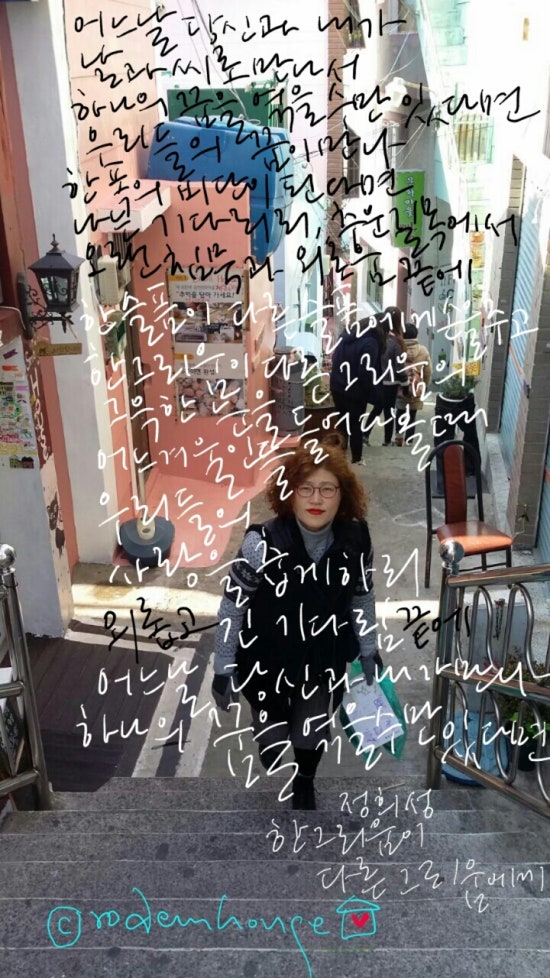 어느날 당신과 내가
날과 씨로 만나서
하나의 꿈을 엮을 수만 있다면
우리들의 꿈이 만나
한 폭의 비단이 된다면
나는 기다리리, 추운 길목에서
오랜 침묵과 외로움 끝에
한 슬픔이 다른 슬픔에게 손을 주고
한 그리움이 다른 그리움의
그윽한 눈을 들여다볼 때
어느 겨울인들
우리들의
사랑을 춥게 하리
외롭고 긴 기다림 끝에
어느날 당신과 내가 만나
하나의 꿈을 엮을 수만 있다면
정희성
한 그리움이
다른 그리움에게
©rodemhouse
"추억을 담아 가세요!"